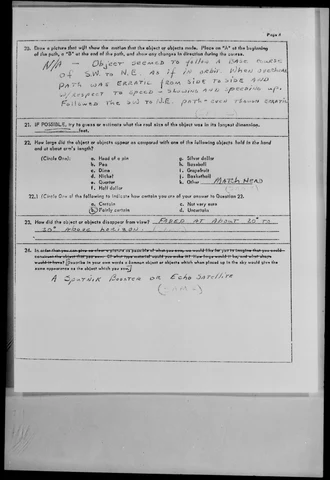 Page 4
20. Draw a picture that will show the motion that the object or objects made. Place an "A" at the beginning
of the path, a "B" at the end of the path, and show any changes in direction during the course.
N/A - OBJECT SEEMED TO FOLLOW A BASE COURSE
OF S.W. TO N.E. AS IF IN ORBIT. WHEN OVERHEAD
PATH WAS ERRATIC FROM SIDE TO SIDE AND
W/RESPECT TO SPEED - SLOWING AND SPEEDING UP.
FOLLOWED THE SW TO N.E. PATH EVEN THOUGH ERRATIC
21. IF POSSIBLE, try to guess or estimate what the real size of the object was in its longest dimension.
feet.
22. How large did the object or objects appear as compared with one of the following objects held in the hand
and at about arm's length?
(Circle One): a. Head of a pin g. Silver dollar
b. Pea h. Baseball
c. Dime i. Grapefruit
d. Nickel j. Basketball
e. Quarter k. Other MATCH HEAD
f. Half dollar
22.1 (Circle One of the following to indicate how certain you are of your answer to Question 22.
a. Certain c. Not very sure
b. Fairly certain d. Uncertain
23. How did the object or objects disappear from view? FADED AT ABOUT 20° TO
30° ABOVE HORIZON
24. In order that you can give as clear a picture as possible of what you saw, we would like for you to imagine that you could
construct the object that you saw. Of what type material would you make it? How large would it be, and what shape
would it have? Describe in your own words a common object or objects which when placed up in the sky would give the
same appearance as the object which you saw.
A SPUTNIK BOOSTER OR ECHO SATELLITE